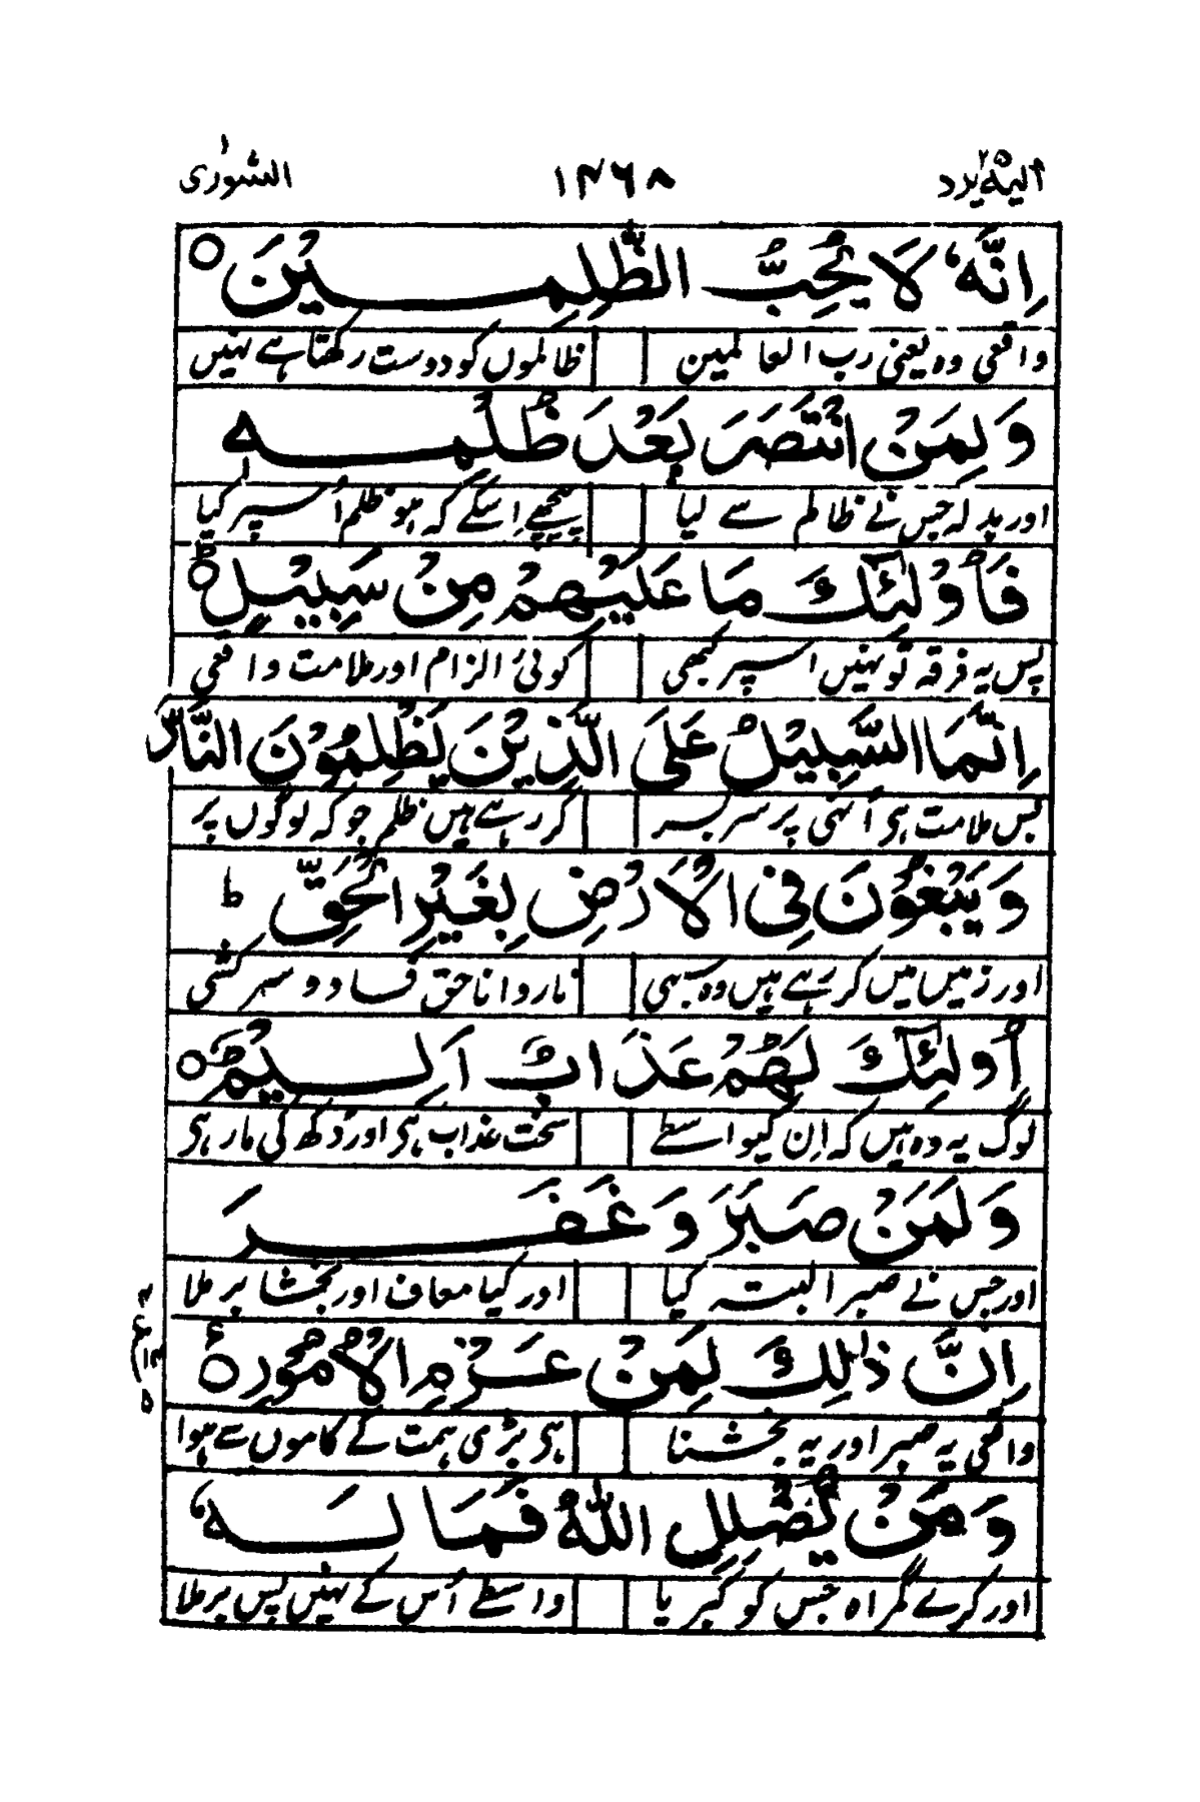 الیہ یرد ۲۵ ۱۴۶۸ الشوریٰ
اِنَّهٗ لَا يُحِبُّ الظّٰلِمِيْنَ ○
واقعی وہ یعنی رب العالمین ظالموں کو دوست رکھتا ہے نہیں
وَ لَمَنِ انْتَصَرَ بَعْدَ ظُلْمِهٖ
اور بدلہ جس نے ظالم سے لیا پیچھے اِسکے کہ ہو ظلم اُسپر کیا
فَاُولٰٓئِكَ مَا عَلَيْهِمْ مِنْ سَبِيْلٍ ○ؕ
پس یہ فرقہ تو نہیں اسپر کبھی کوئی الزام اور ملامت واقعی
اِنَّمَا السَّبِيْلُ عَلَى الَّذِيْنَ يَظْلِمُوْنَ النَّاسَ
بس ملامت ہی اُنہی پر سربسر کر رہے ہیں ظلم جو کہ لوگوں پر
وَ يَبْغُوْنَ فِى الْاَرْضِ بِغَيْرِ الْحَقِّ ط
اور زمیں میں کر رہے ہیں وہ سبھی ناروا ناحق فساد و سرکشی
اُولٰٓئِكَ لَهُمْ عَذَابٌ اَلِيْمٌ ○
لوگ یہ وہ ہیں کہ اِن کیواسطے سخت عذاب ہی اور دُکھ کی مار ہی
وَ لَمَنْ صَبَرَ وَ غَفَرَ
اور جس نے صبر البتہ کیا اور کیا معاف اور بخشا برملا
اِنَّ ذٰلِكَ لَمِنْ عَزْمِ الْاُمُوْرِ ○ۧ
واقعی یہ صبر اور یہ بخشنا ہی بڑی ہمت کے کاموں سے ہوا
وَ مَنْ يُّضْلِلِ اللّٰهُ فَمَا لَهٗ
اور کرے گمراہ جس کو کبریا واسطے اُس کے نہیں پس برملا